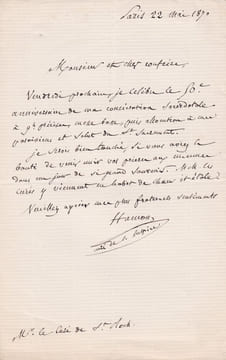 Paris 22 Mai 1870
Monsieur et cher confrère,
Vendredi prochain, je célèbre le 50e
anniversaire de ma consécration Sacerdotale
à 9h précises messe basse, puis allocution à mes
paroissiens et Salut du St Sacrement.
je serais bien touché si vous aviez la
bonté de venir unir vos prières aux miennes
dans un jour de si grand souvenir. MM. les
curés y viennent en habit de chœur et étole
Veuillez agréer mes plus fraternels sentiments
Hamon
curé de S. Sulpice
Mr. le Curé de St. Roch.